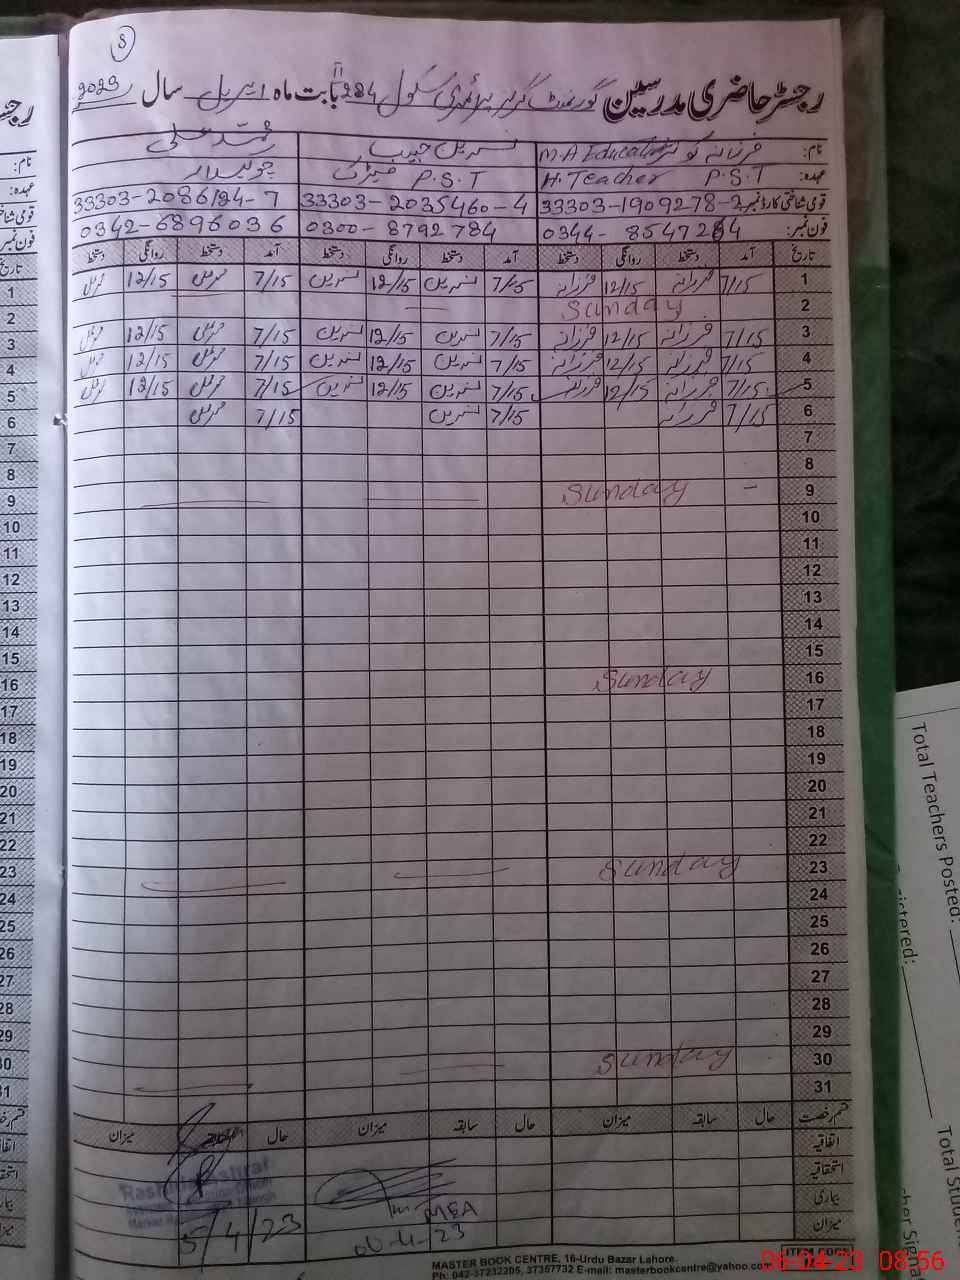 8
رجسٹر حاضری مدرسین گورنمنٹ گرلز پرائمری سکول 284 بابت ماہ اپریل سال 2023
نام: فرزانہ کوثر M.A Education نسرین حبیب محمد علی
عہدہ: P.S.T H.Teacher P.S.T میٹرک چوکیدار
قومی شناختی کارڈ نمبر 33303-1909278-2 33303-2035460-4 33303-2086194-7
فون نمبر: 0344-8547264 0300-8792784 0342-6896036
تاریخ آمد دستخط روانگی دستخط آمد دستخط روانگی دستخط آمد دستخط روانگی دستخط
1 7/15 فرزانہ 12/15 فرزانہ 7/15 نسرین 12/15 نسرین 7/15 12/15
2 Sunday
3 7/15 فرزانہ 12/15 فرزانہ 7/15 نسرین 12/15 نسرین 7/15 12/15
4 7/15 فرزانہ 12/15 فرزانہ 7/15 نسرین 12/15 نسرین 7/15 12/15
5 7/15 فرزانہ 12/15 فرزانہ 7/15 نسرین 12/15 نسرین 7/15 12/15
6 7/15 فرزانہ 7/15 نسرین 7/15
7
8
9 Sunday
10
11
12
13
14
15
16 Sunday
17
18
19
20
21
22
23 Sunday
24
25
26
27
28
29
30 Sunday
31
قسم رخصت حال سابقہ میزان حال سابقہ میزان حال سابقہ میزان
اتفاقیہ
استحقاقیہ
بیماری
میزان
Ashraf
5/4/23
MEA
06-4-23
MASTER BOOK CENTRE, 16-Urdu Bazar Lahore.
Ph: 042-37232205, 37357732 E-mail: masterbookcentre@yahoo.com
Total Teachers Posted:
06-04-23 08:56